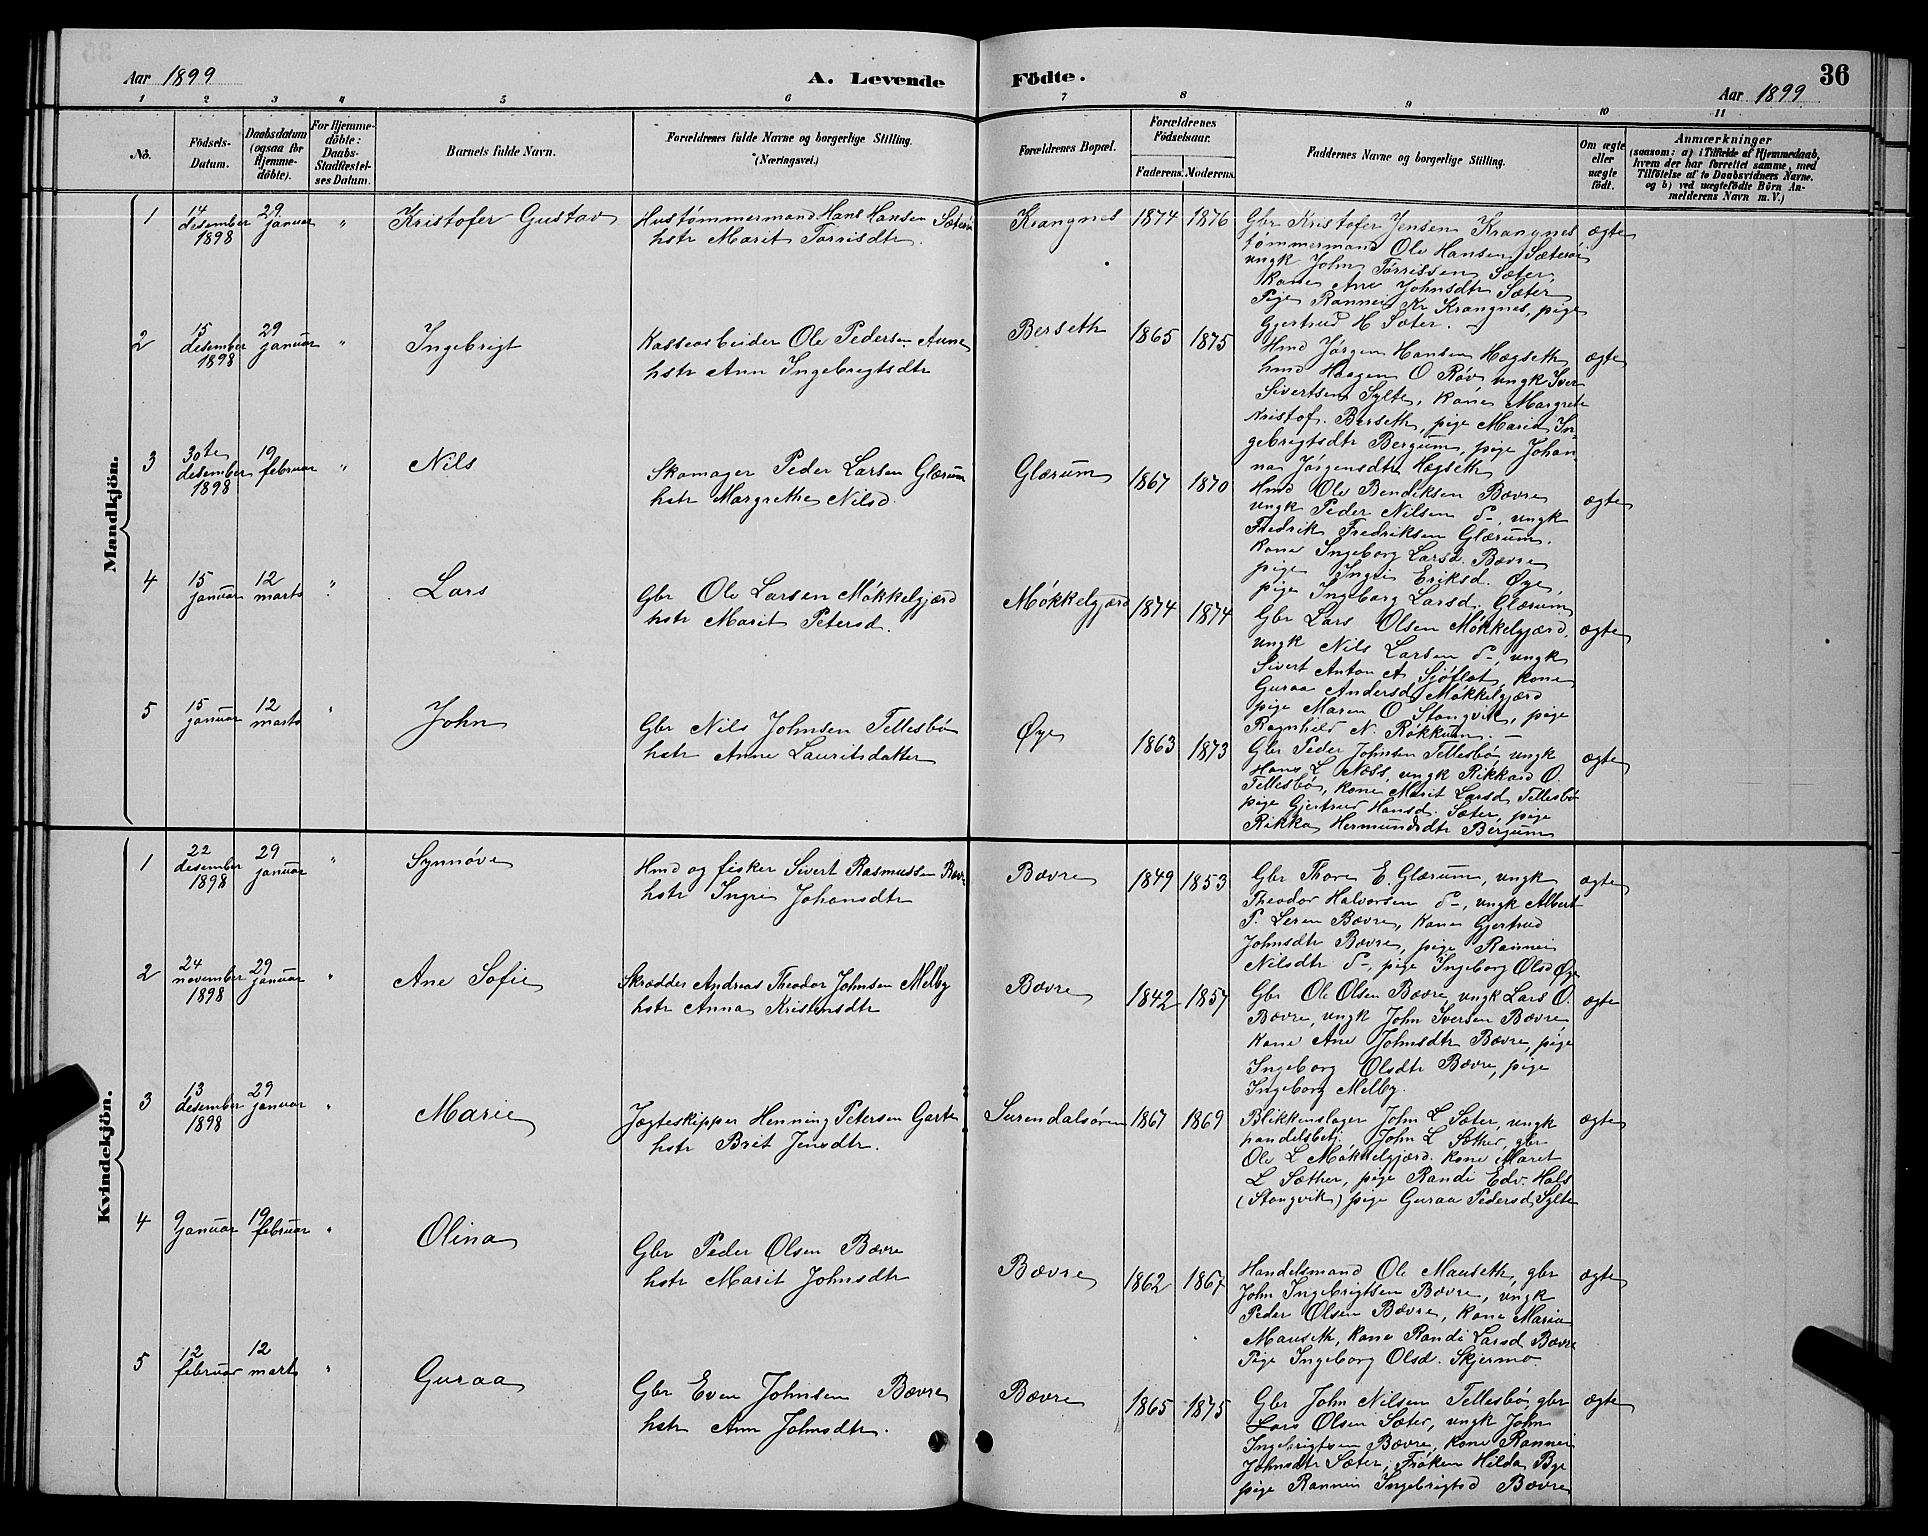 Aar 1899
A. Levende Födte.
36
Aar 1899
1 2 3 4 5 6 7 8 9 10 11
No.
Födsels-Datum.
Daabsdatum (ogsaa for Hjemme-döbte).
For Hjemme-döbte: Daabs-Stadfæstel-ses Datum.
Barnets fulde Navn.
Forældrenes fulde Navne og borgerlige Stilling. (Næringsvei.)
Forældrenes Bopæl.
Forældrenes Födselsaar.
Faderens. Moderens.
Faddernes Navne og borgerlige Stilling.
Om ægte eller uægte födt.
Anmærkninger
(saasom: a) i Tilfælde af Hjemmedaab, hvem der har forrettet samme, med Tilföielse af to Daabsvidners Navne. og b) ved uægtefödte Börn An-melderens Navn m. V.)
Mandkjön.
1
14 desember 1898
29 januar
"
Kristofer Gustav
Hustømmermand Hans Hansen Sæterøi
hstr Marit Torrisdtr.
Krangnes
1874 1876
Gbr Kristofer Jensen Krangnes
tømmermand Ole Hansen Sæterøi
ungk John Torrissen Sæter
kone Ane Johnsdtr Sæter
Pige Rannei Kr Krangnes, pige
Gjertrud H Sæter.
ægte
2
15 desember 1898
29 januar
"
Ingebrigt
Kassearbeider Ole Pedersen Aune
hstr Ann Ingebrigtsdtr
Berseth
1865 1875
Hmd Jørgen Hansen Hegseth
hmd Haagen O Røv ungk Iver
Sivertsen Sylte, kone Margrete
Kristof. Berseth, pige Marie In-
gebrigtsdtr Bergum, pige Johan-
na Jørgensdtr Hegseth
ægte
3
30te desember 1898
19 februar
"
Nils
Skomager Peder Larsen Glærum
hstr Margrethe Nilsd
Glærum
1867 1870
Hmd Ole Bendiksen Bævre
ungk Peder Nilsen d-, ungk
Fredrik Fredriksen Glærum.
kone Ingeborg Larsd. Bævre
pige Ingri Eriksd. Øye,
pige Ingeborg Larsd. Glærum
ægte
4
15 januar
12 marts
"
Lars
Gbr Ole Larsen Møkkelgjærd
hstr Marit Petersd.
Møkkelgjærd
1874 1874
Gbr Lars Olsen Møkkelgjærd,
ungk Nils Larsen d-, ungk
Sivert Anton A Sjøflot, kone
Guraa Andersd Møkkelgjærd
pige Maren O Stangvik, pige
Ragnhild N. Røkkum. —
ægte
5
15 januar
12 marts
"
John
Gbr Nils Johnsen Tellesbø
hstr Anne Lauritsdatter
Øye
1863 1873
Gbr Peder Johnsen Tellesbø, ungk
Hans L Næss, ungk Rikkard O.
Tellesbø, kone Marit Larsd Tellesbø
pige Gjertrud Hansd. Sæter, pige
Rikka Hermundsdtr Bergum
ægte
Kvindekjön.
1
22 desember 1898
29 januar
"
Synnøve
Hmd og fisker Sivert Rasmussen Bævr
hstr Ingri Johansdtr
Bævre
1849 1853
Gbr Thore E. Glærum, ungk
Theodor Halvorsen d-, ungk Albert
P. Leren Bævre, kone Gjertrud
Johnsdtr Bævre, pige Rannei
Nilsdtr d-, pige Ingeborg Olsd Øye
ægte
2
24 november 1898
29 januar
"
Ane Sofie
Skrædder Andreas Theodor Johnsen Melby
hstr Anna Kristensdtr
Bævre
1842 1857
Gbr Ole Olsen Bævre, ungk Lars O.
Bævre, ungk John Iversen Bævre
kone Ane Johnsdtr Bævre, pige
Ingeborg Olsdtr Bævre, pige
Ingeborg Melby.
ægte
3
13 desember 1898
29 januar
"
Marie
Jægteskipper Henning Petersen Garte
hstr Brit Jensdtr.
Surendalsøren
1867 1869
Blikkenslager John L Sæter, ungk
handelsbetj. John L Sæther, gbr
Ole L Møkkelgjærd. kone Maret
L Sæther, pige Randi Edv. Hals
(Stangvik) pige Guraa Pedersd Sylte
ægte
4
9 januar
19 februar
"
Olina
Gbr Peder Olsen Bævre
hstr Marit Johnsdtr
Bævre
1862 1867
Handelsmand Ole Mauseth, gbr
John Ingebrigtsen Bævre, ungk
Peder Olsen Bævre, kone Maria
Mauseth, kone Randi Larsd Bævre
Pige Ingeborg Olsd. Skjermo
ægte
5
12 februar
12 marts
"
Guraa
Gbr Even Johnsen Bævre
hstr Ann Johnsdtr.
Bævre
1865 1875
Gbr John Nilsen Tellesbø, gbr
Lars Olsen Sæter, ungk John
Ingebrigtsen Bævre, kone Rannei
Johnsdtr Sæter, Frøken Hilda Bye
pige Rannei Ingebrigtsd Bævre
ægte